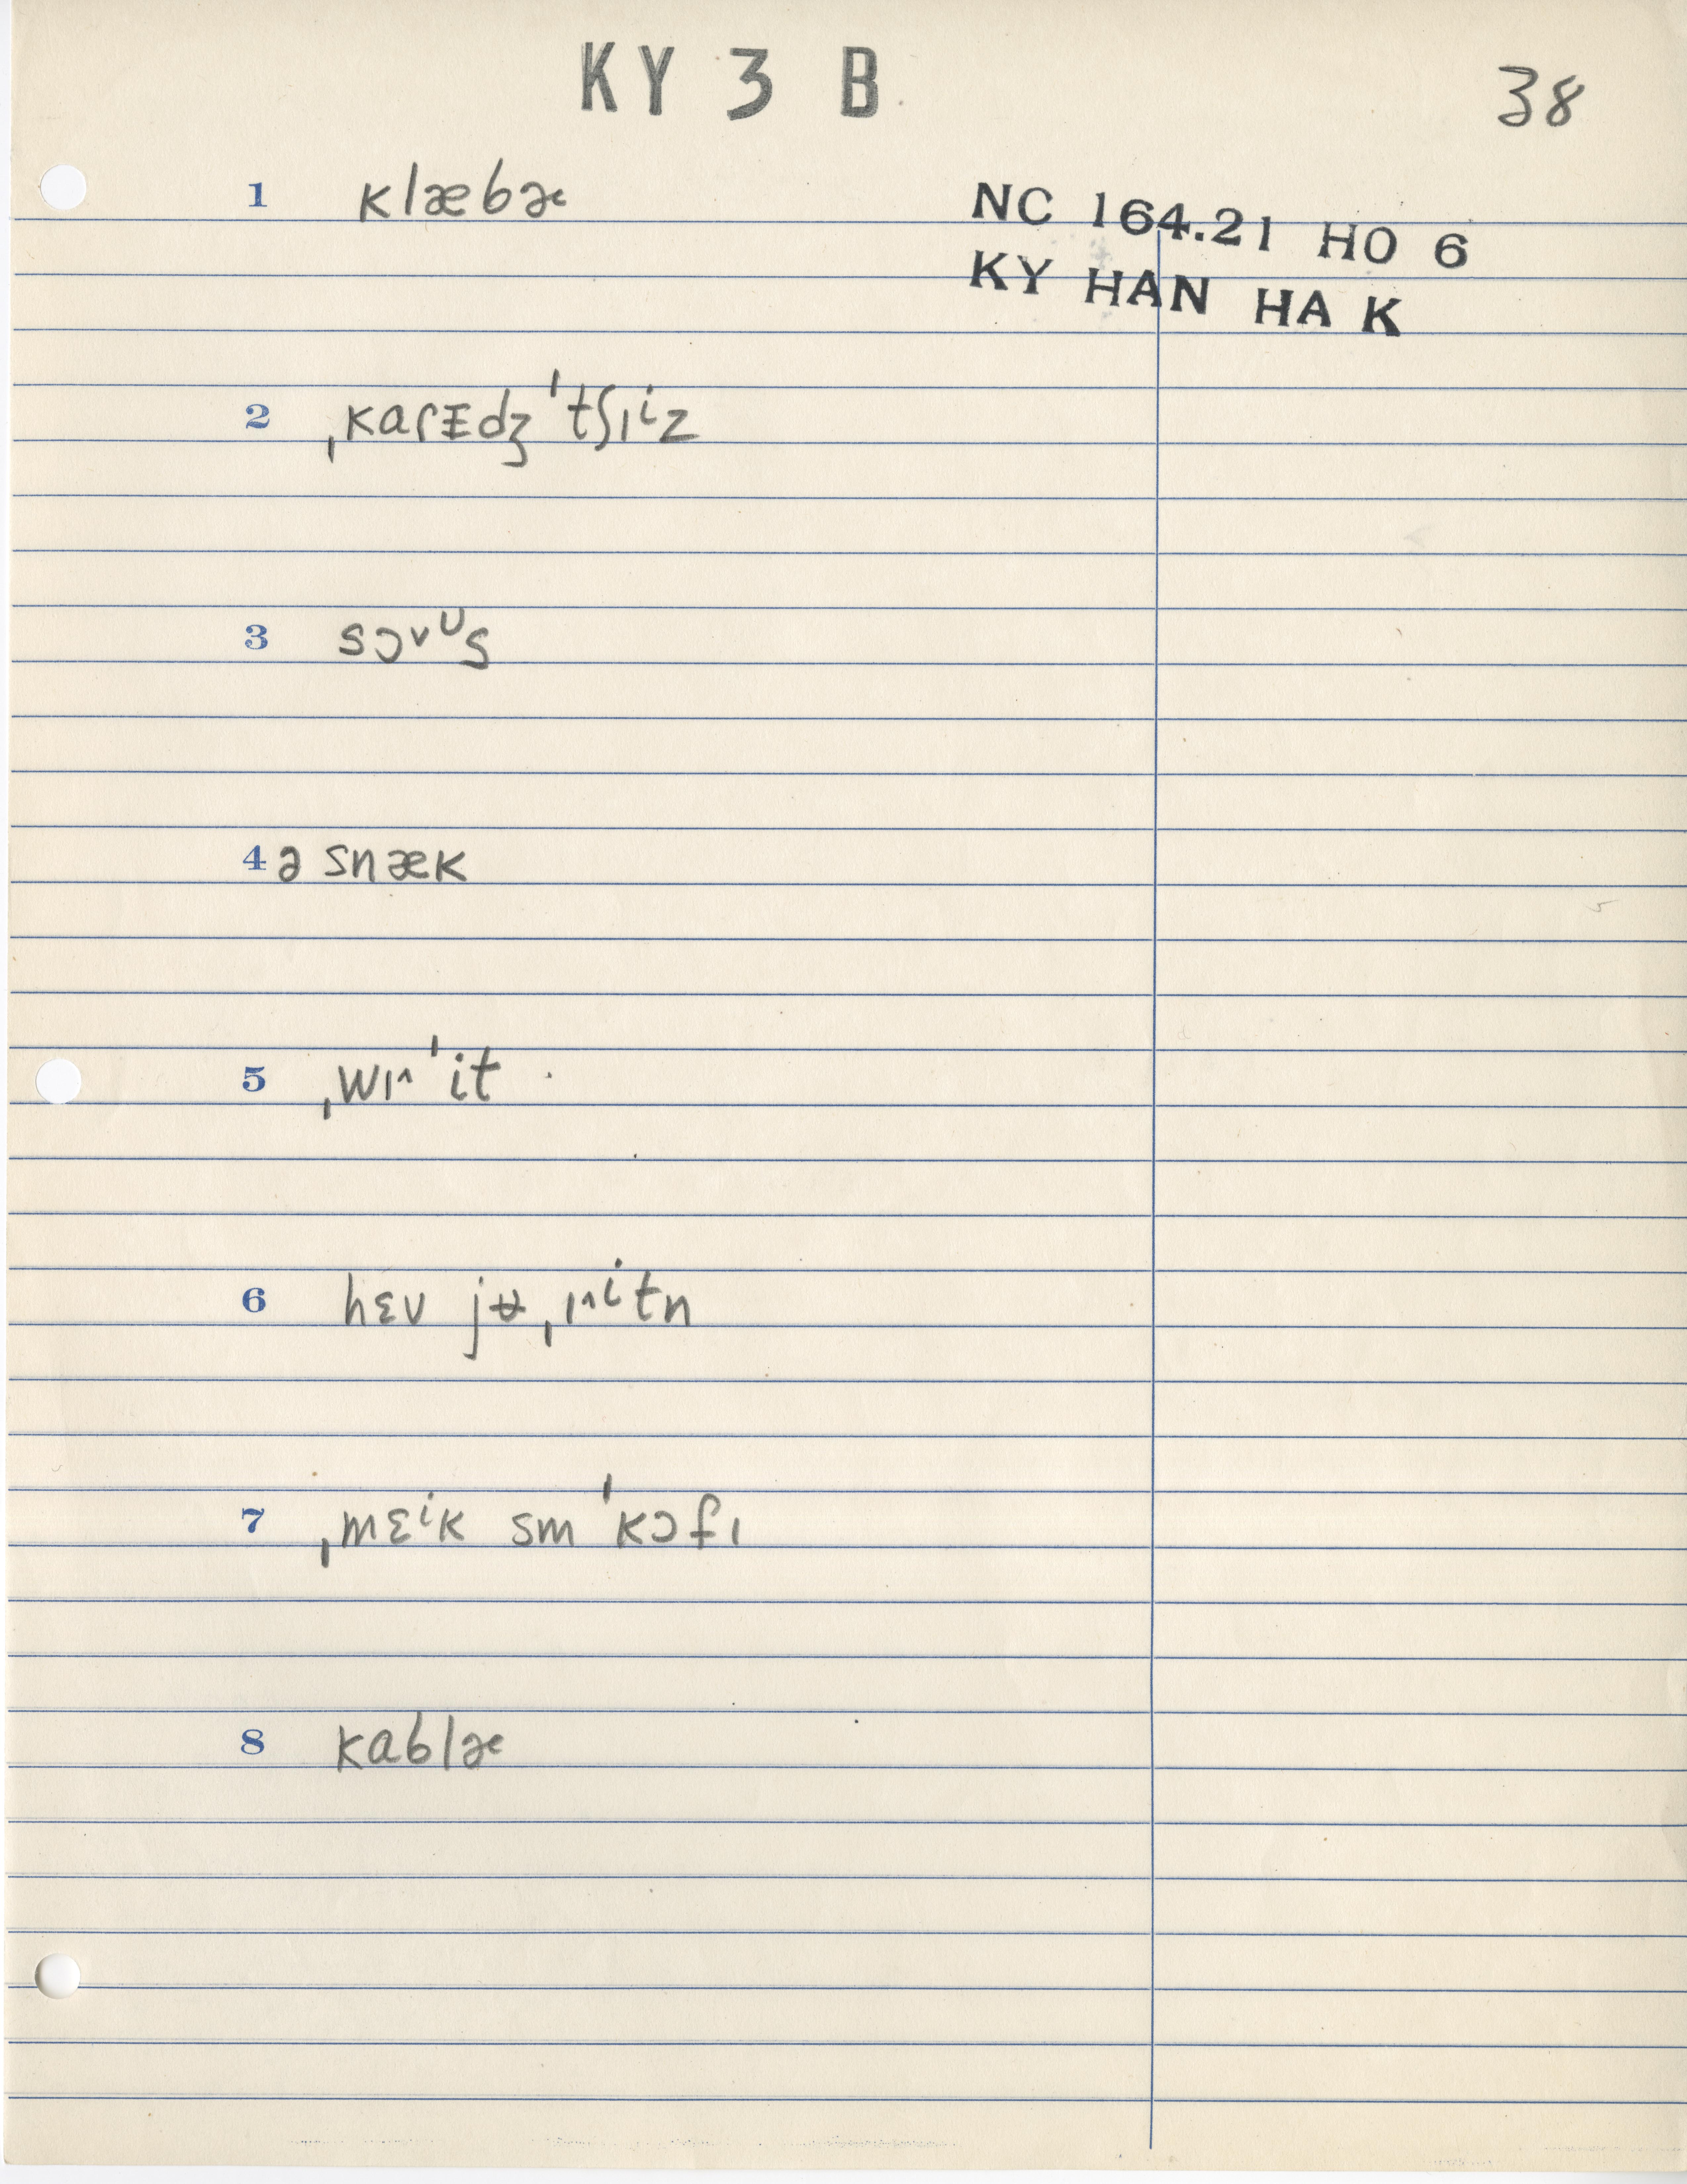 KY 3 B
38
1 klæbɚ
NC 164.21 HO 6
KY HAN HA K
2 ˌkaɾɪdʒ ˈtʃɪⁱz
3 sɔ˅ᶷs
4 ə snæk
5 ˌwɪ˄ ˈit
6 hɛv jʉ ˌɪ˄ⁱtn
7 ˌmɛⁱk sm ˈkɔfɪ
8 kablɚ